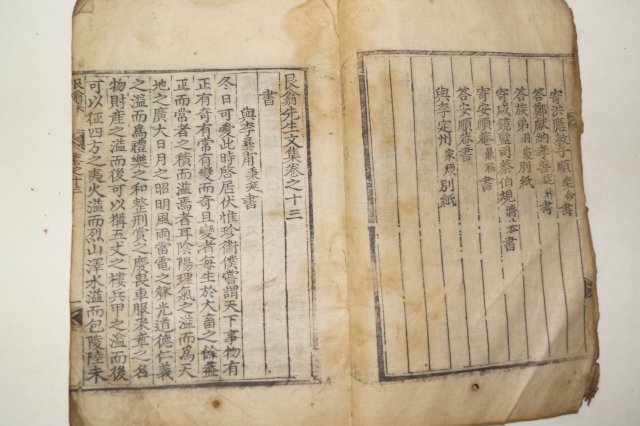 寄洪應敎子順樂命書
答鄭獻納季善述祚書
答族弟羽慶別紙
寄咸鏡監司蔡伯規濟恭書
寄安順庵鼎福書
答安順庵書
與李定州家煥別紙
艮翁先生文集卷之十三
書
與李景甫秉延書
冬日可愛此時啓居伏惟珍衛僕嘗謂天下事物有
正有奇有常有變而奇且變者每生於大畜之餘盖
正而常者之積而溢焉者耳陰陽理氣之溢而爲天
地之廣大日月之昭明風雨雷電之聲光道德仁義
之溢而爲禮樂之和整刑賞之慶畏車服采章之名
物財產之溢而後可以搆五丈之樓兵甲之溢而後
可以征四方之夷火溢而烈山澤水溢而包陵陸未